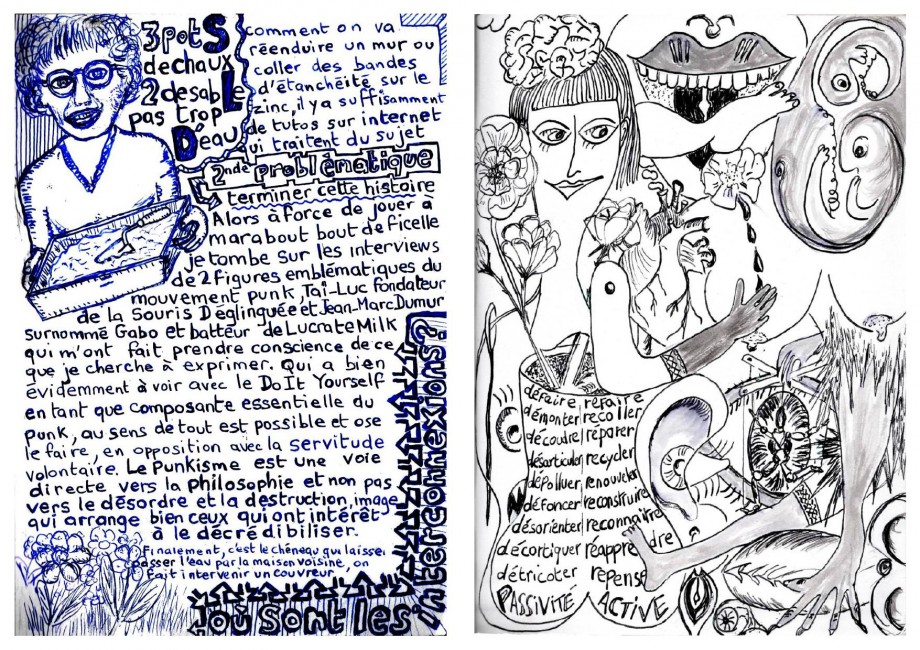 3 potS
de chaux
2 desabLe
pas trop
D'eau
comment on va
réenduire un mur ou
coller des bandes
d'étanchéité sur le
zinc, il y a suffisamment
de tutos sur internet
qui traitent du sujet
2nde problématique
terminer cette histoire
Alors à force de jouer à
marabout bout de ficelle
je tombe sur les interviews
de 2 figures emblématiques du
mouvement punk, Taï-Luc fondateur
de la Souris Déglinguée et Jean-Marc Dumur
Surnommé Gabo et batteur de Lucrate Milk
qui m'ont fait prendre conscience de ce
que je cherche à exprimer. Qui a bien
évidemment à voir avec le Do It Yourself
en tant que composante essentielle du
punk, au sens de tout est possible et ose
le faire, en opposition avec la servitude
volontaire. Le Punkisme est une voie
directe vers la philosophie et non pas
vers le désordre et la destruction, image
qui arrange bien ceux qui ont intérêt
à le décrédibiliser.
Finalement, c'est le chéneau qui laisse
passer l'eau par la maison voisine, on
fait intervenir un couvreur
où sont les
interconnexions?
défaire refaire
démonter recoller
découdre réparer
désarticuler recycler
dépolluer renouveler
défoncer reconstruire
désorienter reconnaître
décortiquer réapprendre
détricoter repenser
PASSIVITÉ ACTIVE